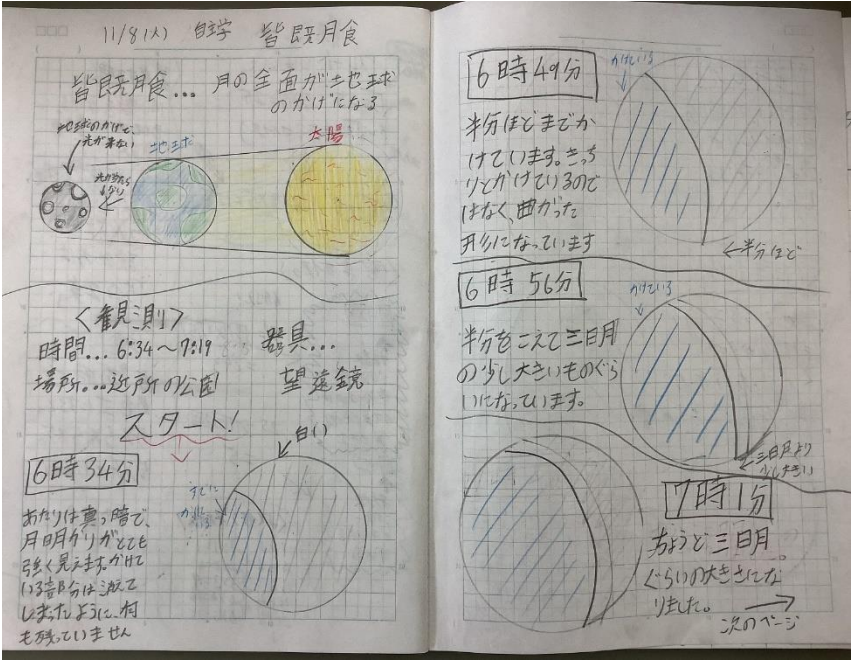 11/8(火) 自主学 皆既月食
皆既月食… 月の全面が地球
のかげになる
地球のかげで、
光が来ない
地球
太陽
光が当たら
ない
〈観測〉
時間… 6:34〜7:19
場所…近所の公園
器具…
望遠鏡
スタート!
6時34分
あたりは真っ暗で、
月明かりがとても
強く見えます。かけて
いる部分は消えて
しまったように、何
も残っていません
白い
すでに
かけている
6時49分
かけている
半分ほどまでか
けています。きっち
りとかけているので
はなく、曲がった
形になっています
←半分ほど
6時56分
かけている
半分をこえて三日月
の少し大きいものぐら
いになっています。
三日月より
少し大きい
7時1分
ちょうど三日月
ぐらいの大きさにな
りました。
次のページ